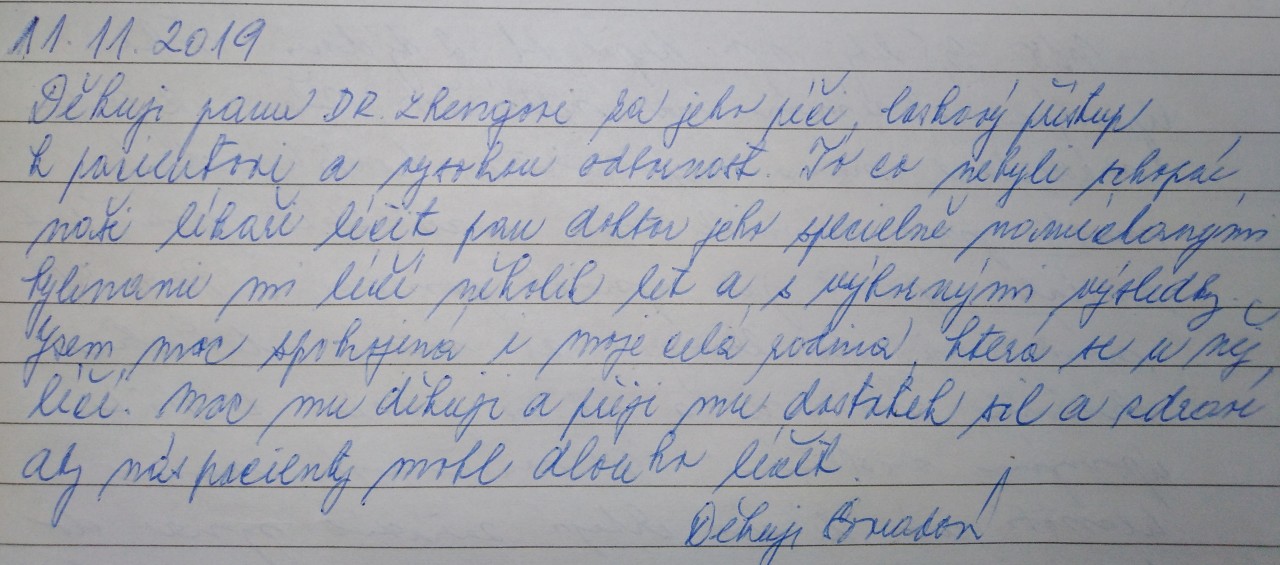 11. 11. 2019
Děkuji panu DR. Zhengovi za jeho péči, laskavý přístup
k pacientovi a vysokou odbornost. To co nebyli schopni
naši lékaři léčit pan doktor jeho specielně namíchanými
bylinami mi léčí několik let a s výbornými výsledky.
Jsem moc spokojená i moje celá rodina, která se u něj
léčí. Moc mu děkuji a přeji mu dostatek sil a zdraví
aby nás pacienty mohl dlouho léčit.
Děkuji